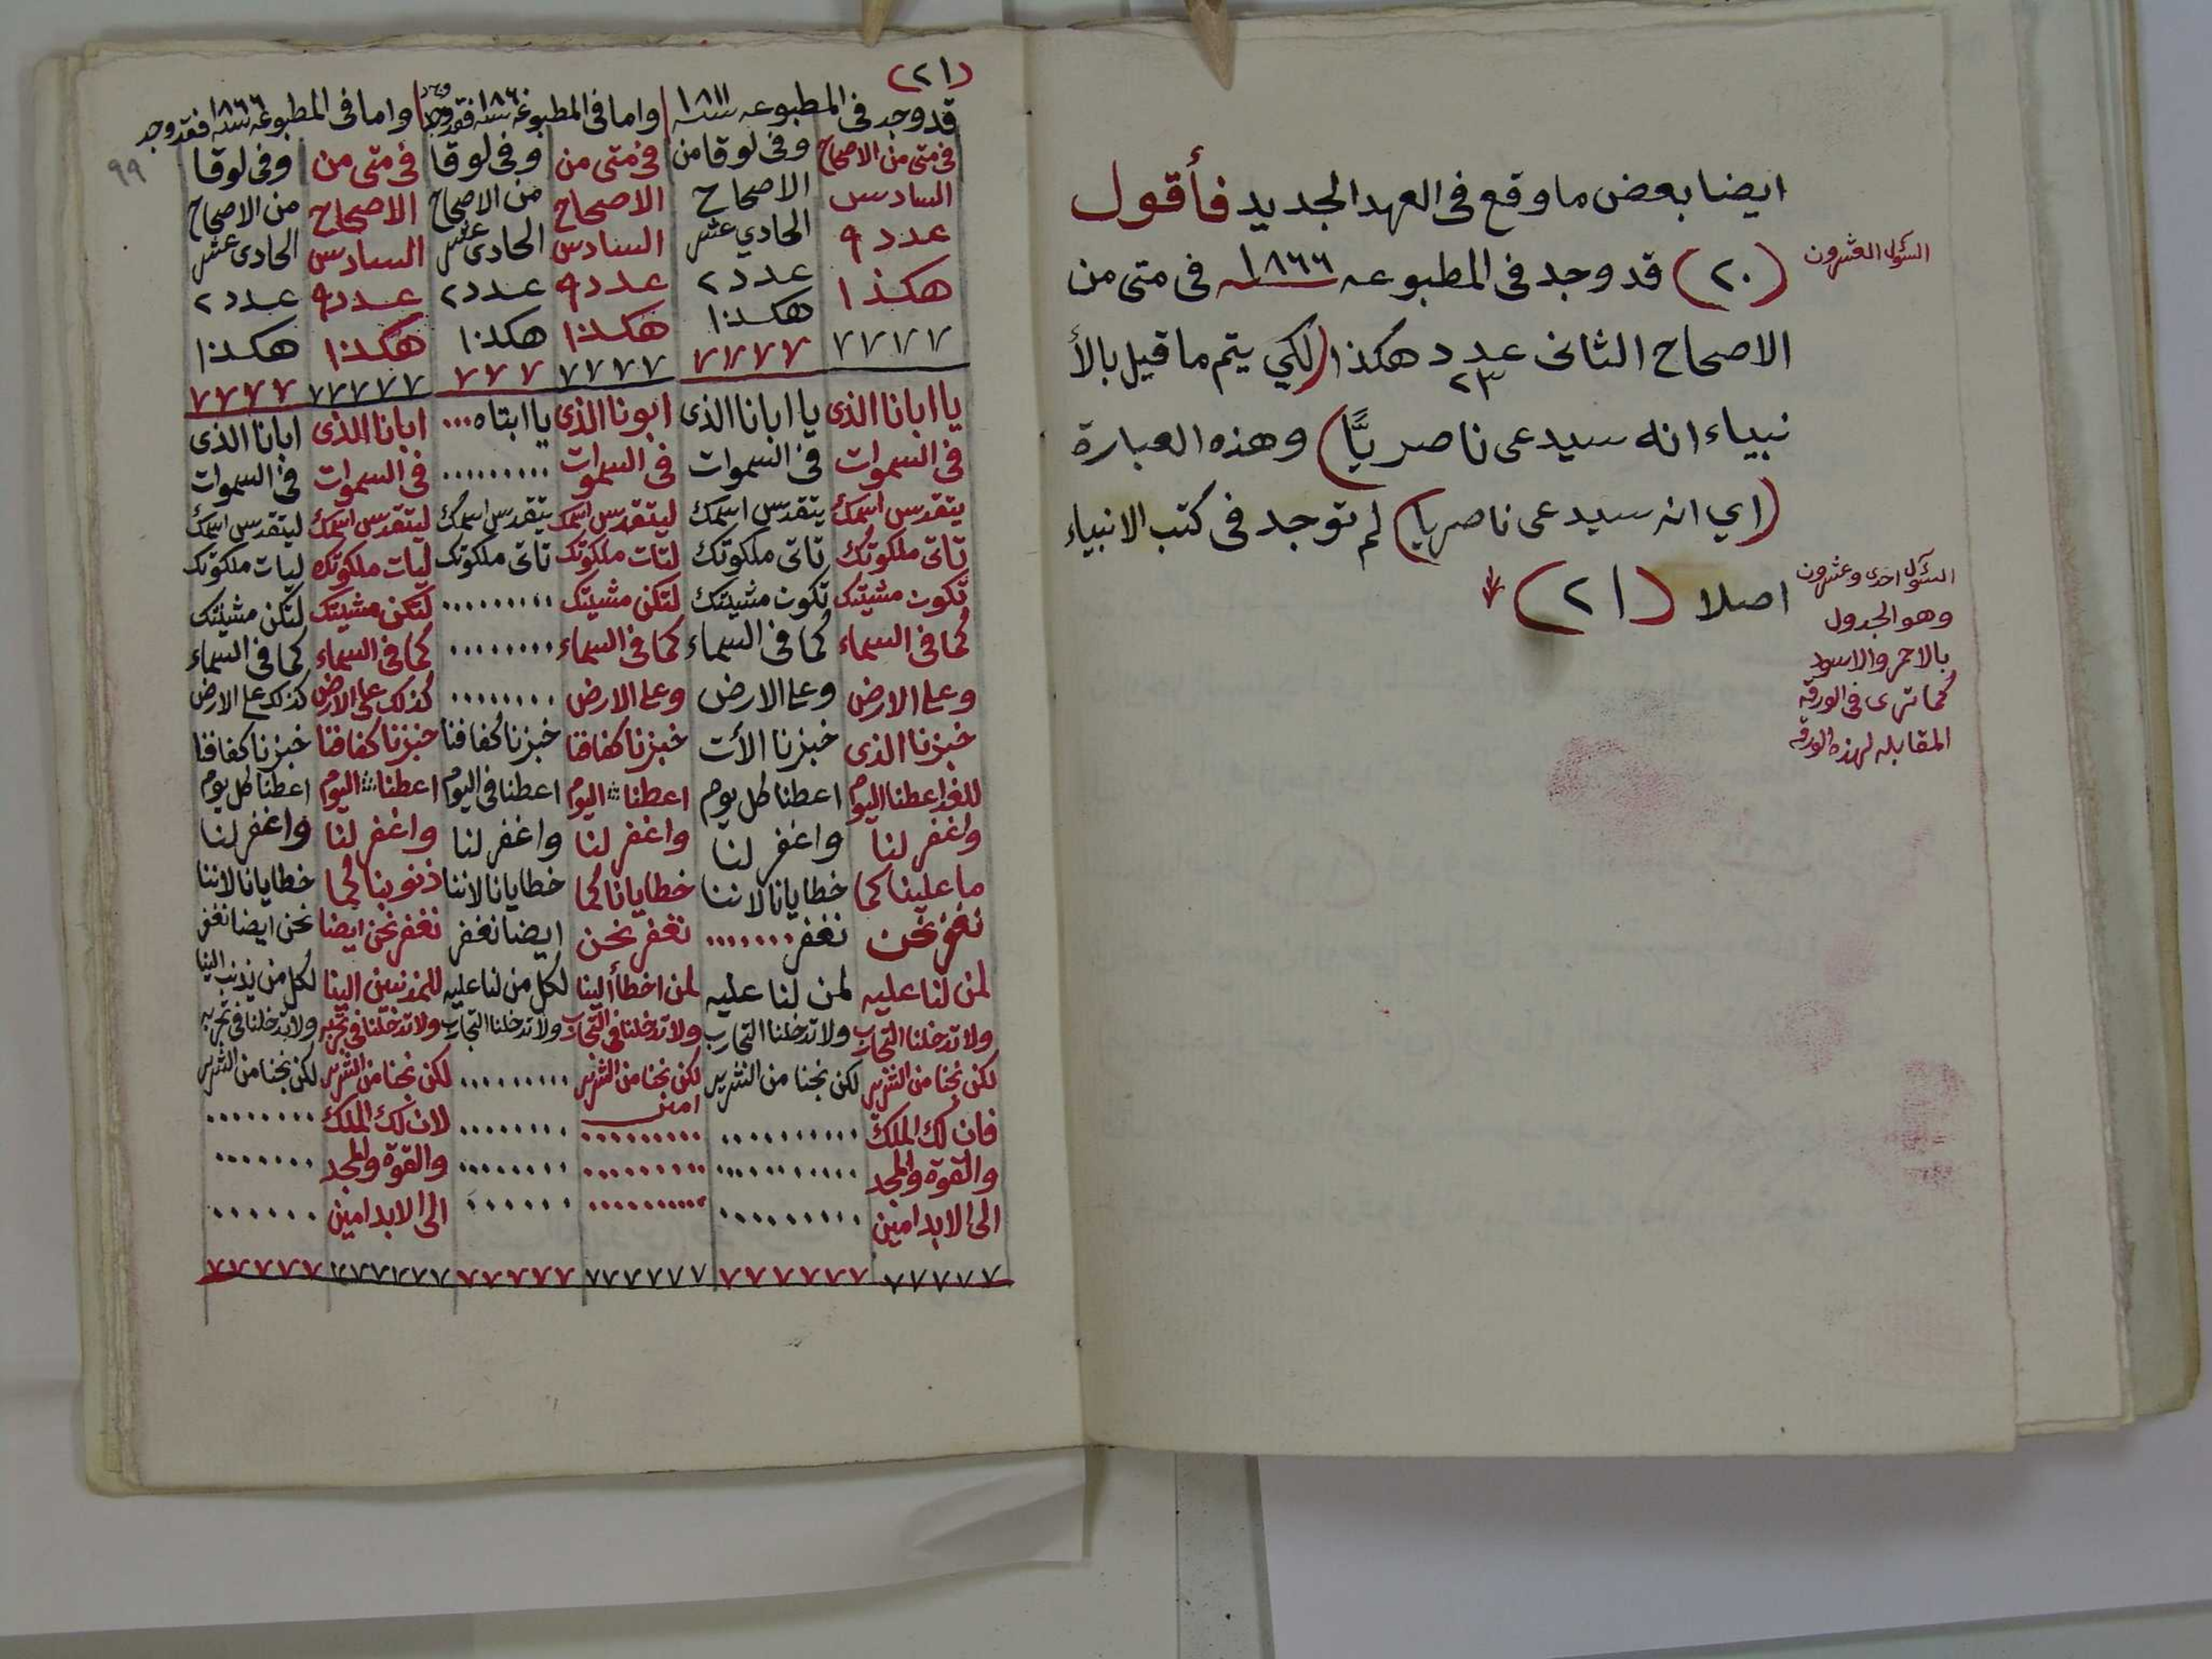 ايضا بعض ما وقع فى العهد الجديد فأقول
السؤل العشرون
(٢٠) قد وجد فى المطبوعه سنه ١٨٦٦ فى متى من
الاصحاح الثانى عدد ٢٣ هكذا (لكي يتم ما قيل بالأ
نبياء انه سيدعى ناصريًّا) وهذه العبارة
(اي انه سيدعى ناصريا) لم توجد فى كتب الانبياء
اصلا (٢١)
السؤل احدى وعشرون
وهو الجدول
بالاحمر والاسود
كما ترى فى الورقه
المقابله لهذه الورقه
(٢١)
٩٩
قد وجد فى المطبوعه سنه ١٨١١ واما فى المطبوعه سنه ١٨٦٠ فقد وجد واما فى المطبوعه سنه ١٨٦٦ فقد وجد
فى متى من الاصحاح وفى لوقا من فى متى من وفى لوقا فى متى من وفى لوقا
السادس الاصحاح الاصحاح من الاصحاح الاصحاح من الاصحاح
عدد ٩ الحادي عشر السادس الحادى عشر السادس الحادى عشر
هكذا عدد ٢ عدد ٩ عدد ٢ عدد ٩ عدد ٢
هكذا هكذا هكذا هكذا هكذا
٧٧٧٧ ٧٧٧٧ ٧٧٧٧ ٧٧٧ ٧٧٧٧٧ ٧٧٧٧
يا ابانا الذى يا ابانا الذى ابونا الذى يا ابتاه... ابانا الذى ابانا الذى
فى السموات فى السموات فى السموات ......... فى السموات فى السموات
يتقدس اسمك يتقدس اسمك ليتقدس اسمك يتقدس اسمك ليتقدس اسمك ليتقدس اسمك
تاتى ملكوتك تاتى ملكوتك لتات ملكوتك تاتى ملكوتك ليات ملكوتك ليات ملكوتك
تكون مشيتك تكون مشيتك لتكن مشيتك ......... لتكن مشيتك لتكن مشيتك
كما فى السماء كما فى السماء كما فى السماء ........ كما فى السماء كما فى السماء
وعلى الارض وعلى الارض وعلى الارض ........ كذلك على الارض كذلك على الارض
خبزنا الذى خبزنا الأت خبزنا كفافنا خبزنا كفافنا خبزنا كفافنا خبزنا كفافنا
للغد اعطنا اليوم اعطنا كل يوم اعطنا اليوم اعطنا فى اليوم اعطنا اليوم اعطنا كل يوم
واغفر لنا واغفر لنا واغفر لنا واغفر لنا واغفر لنا واغفر لنا
ما علينا كما خطايانا لاننا خطايانا كما خطايانا لاننا ذنوبنا كما خطايانا لاننا
نغفر نحن نغفر....... نغفر نحن ايضا نغفر نغفر نحن ايضا نحن ايضا نغفر
لمن لنا عليه لمن لنا عليه لمن اخطأ الينا لكل من لنا عليه للمذنبين الينا لكل من يذنب الينا
ولا تدخلنا التجارب ولا تدخلنا التجارب ولا تدخلنا فى التجارب ولا تدخلنا التجارب ولا تدخلنا فى تجربه ولا تدخلنا فى تجربه
لكن نجنا من الشرير لكن نجنا من الشرير لكن نجنا من الشرير ......... لكن نجنا من الشرير لكن نجنا من الشرير
امين
فان لك الملك .......... ......... ........ لان لك الملك ........
والقوة والمجد .......... ......... ........ والقوة والمجد .......
الى الابد امين ......... .......... ...... الى الابد امين ......
٧٧٧٧٧ ٧٧٧٧٧٧ ٧٧٧٧٧٧ ٧٧٧٧٧ ٧٧٧٧٧٧ ٧٧٧٧٧